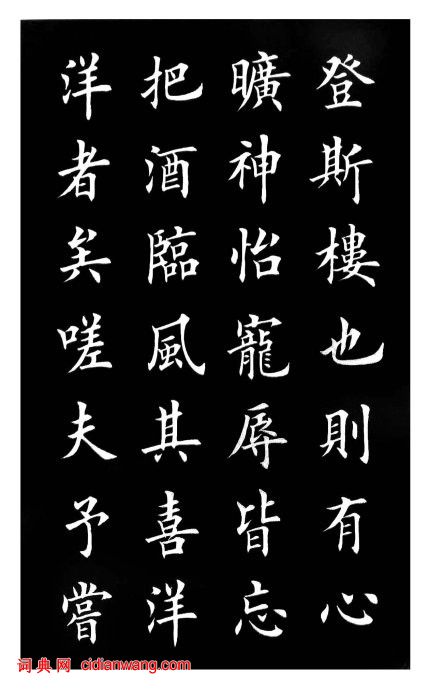 登斯樓也則有心
曠神怡寵辱皆忘
把酒臨風其喜洋
洋者矣嗟夫予嘗
词典网 cidianwang.com